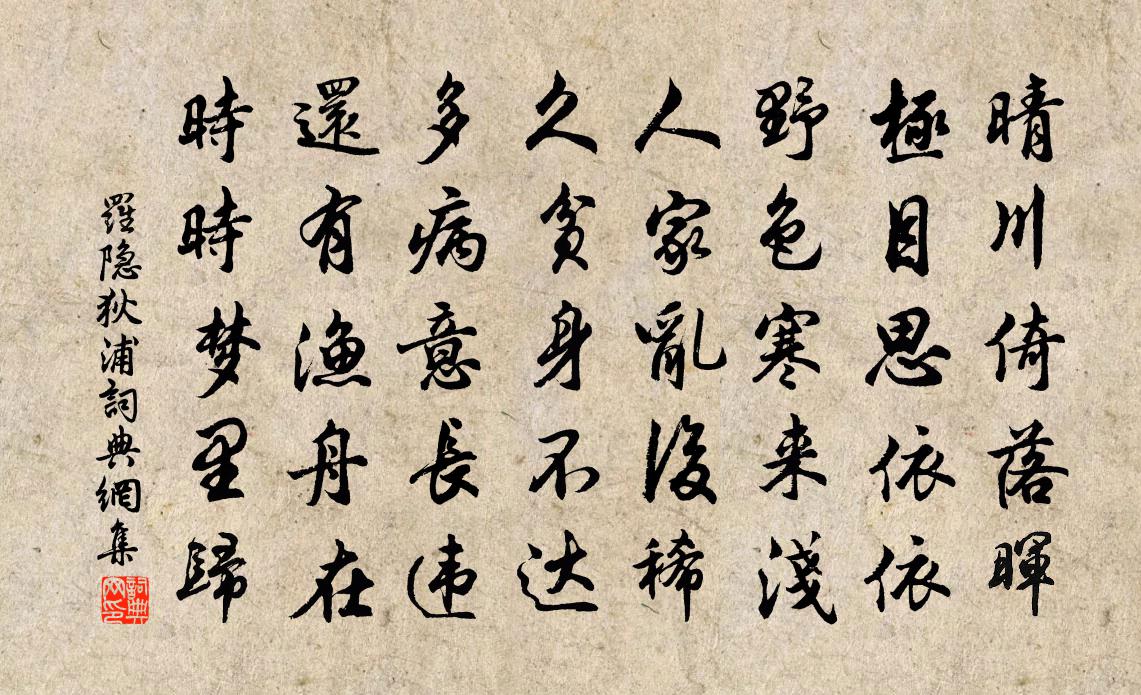 晴川倚落暉
極目思依依
野色寒来淺
人家亂後稀
久貧身不达
多病意長违
還有漁舟在
時時梦里歸
羅隐狄浦詞典網集
詞典网印